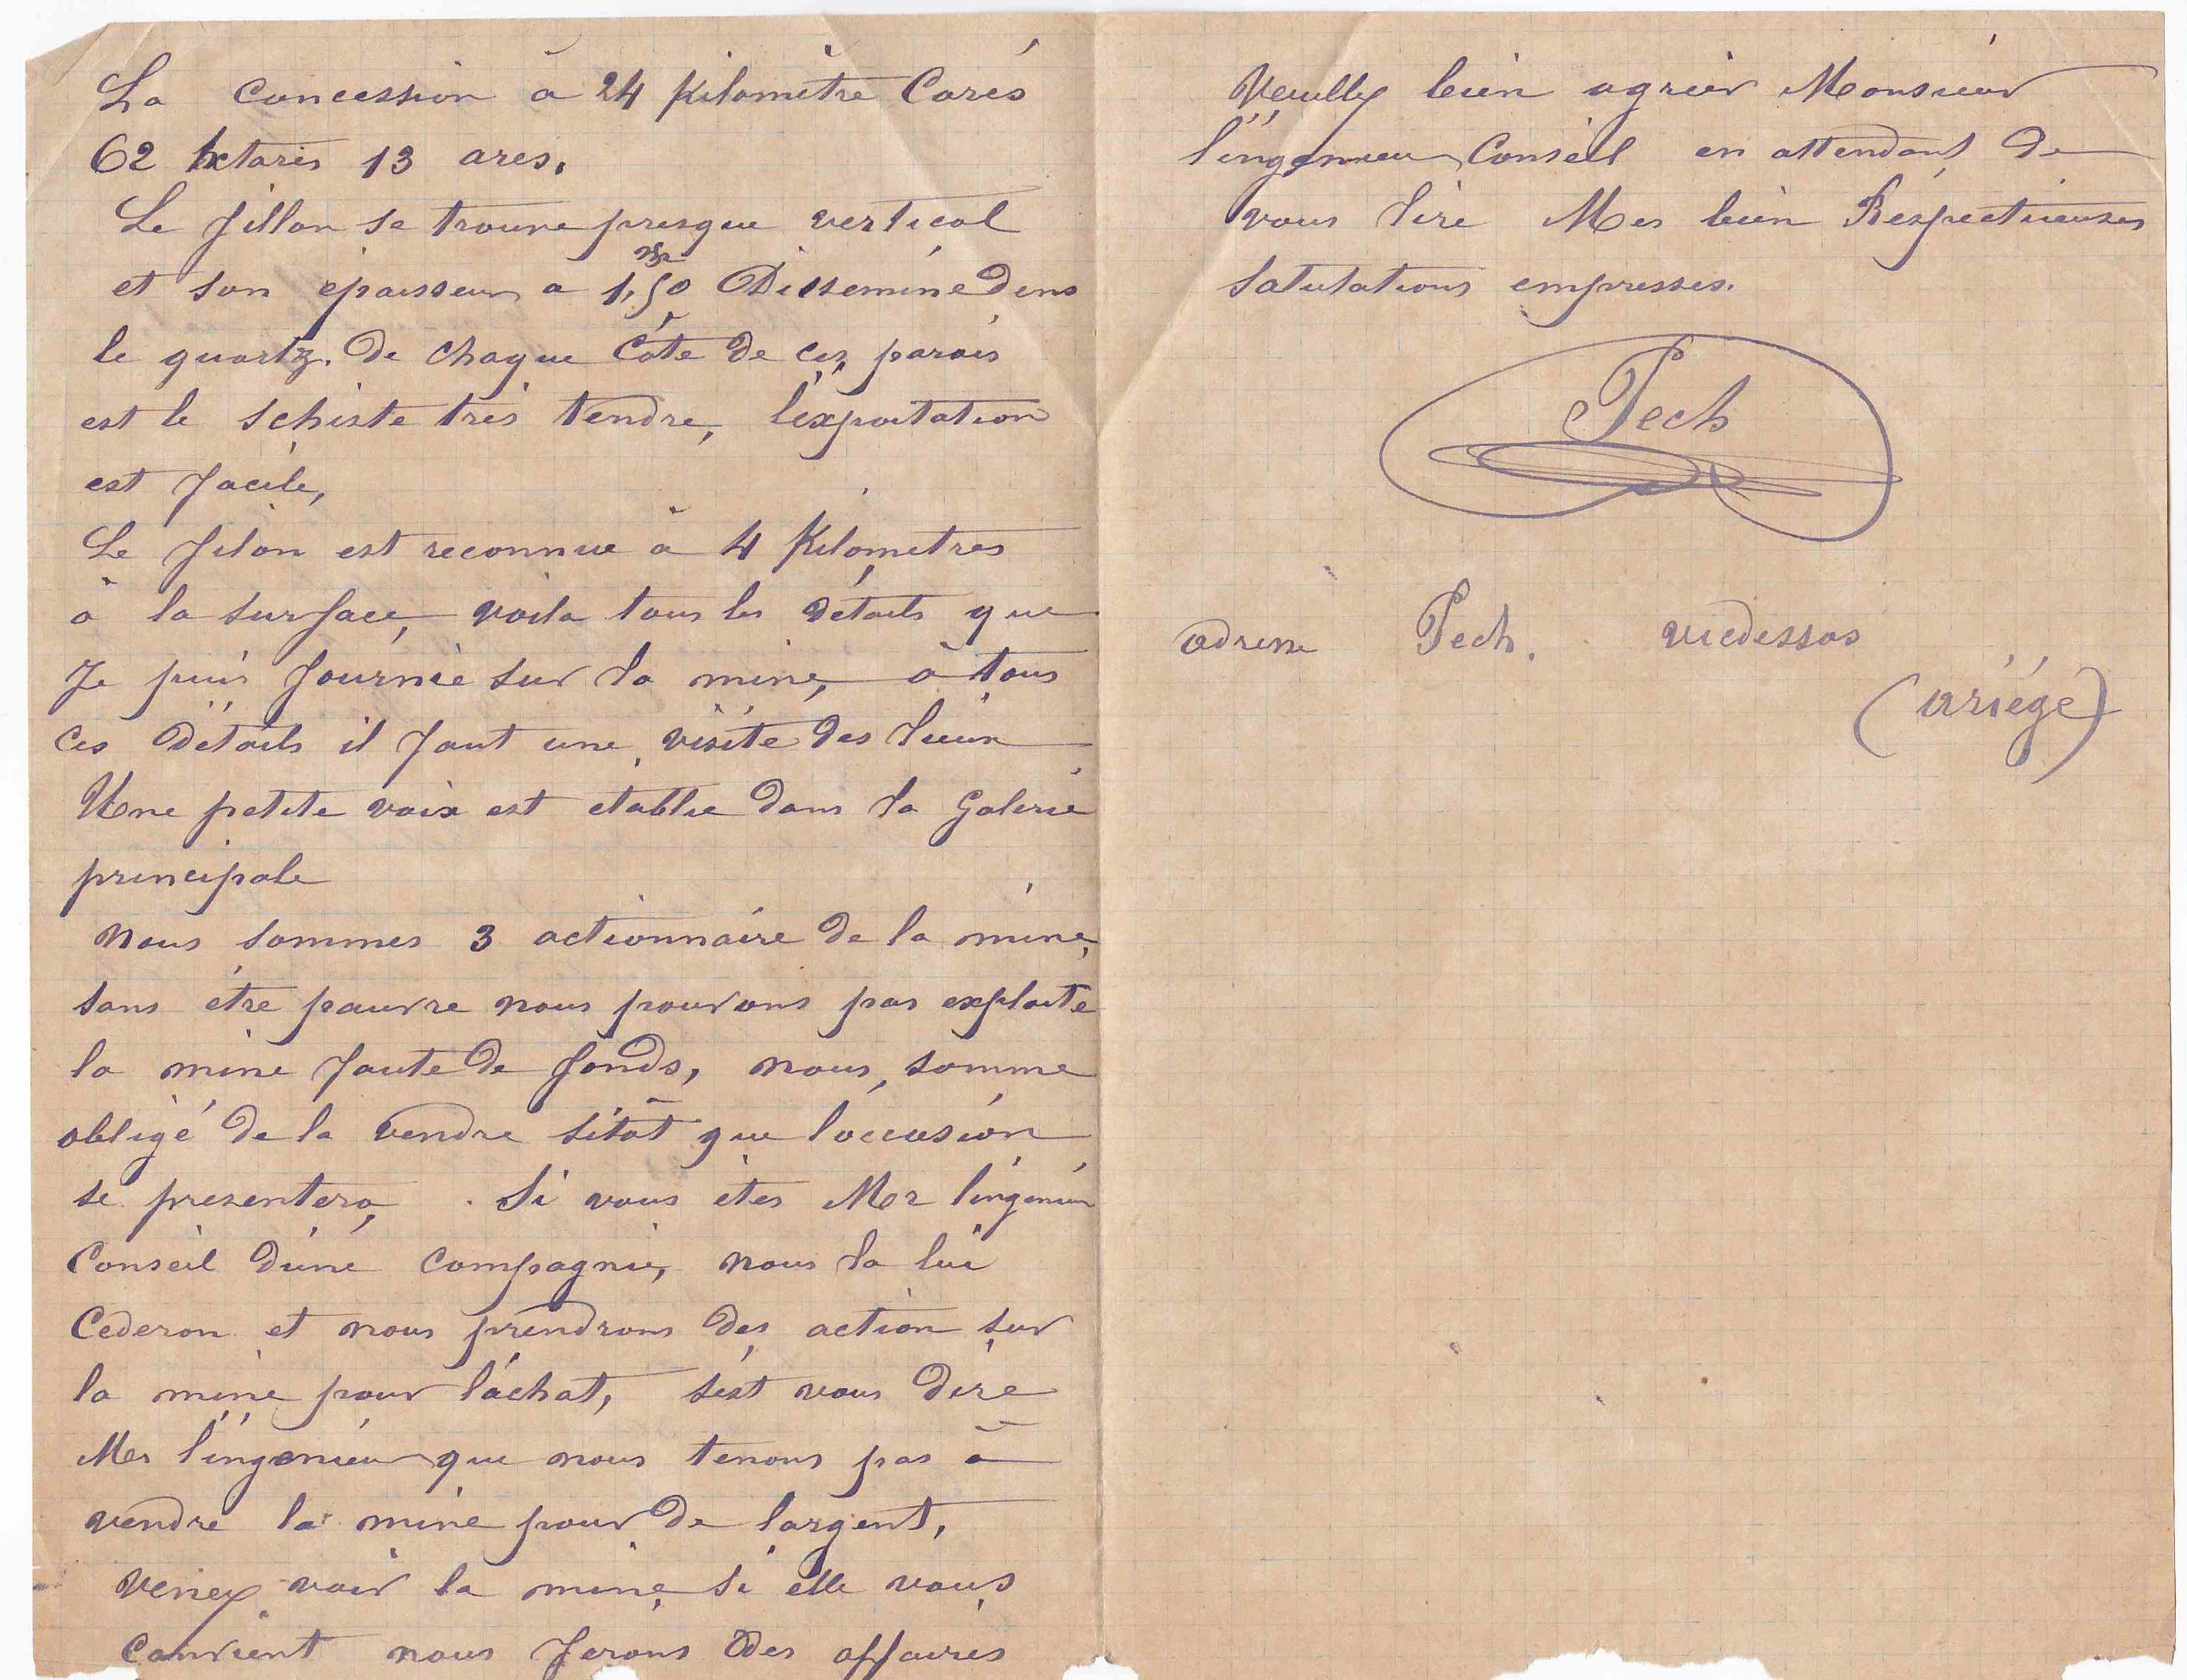 La concession à 24 Kilomètre Carés
62 hctares 13 ares.
Le fillon se trouve presque vertical
et son épaisseur a 1,50 Disseminé Dens
m
le quartz. De chaque Côte de ces parois
est le schiste très tendre, l'exploitation
est facile,
Le filon est reconnue à 4 Kilometres
à la surface, voila tous les détails que
Je puis fournie sur la mine, à tous
ces Détails il faut une visite des lieux
Une petite voix est etablie dans la Galerie
principale
Nous sommes 3 actionnaire de la mine,
sans être pauvre nous pouvons pas exploite
la mine faute de fonds, nous somme
obligé de la vendre sitôt que l'occasion
se presentera, . Si vous êtes Mer l'ingenieur
Conseil d'une compagnie, nous la lui
Cederon et nous prendrons des action sur
la mine pour l'achat, s'est vous dire
Mer l'ingenieur que nous tenons pas à
vendre la mine pour de largent,
Venez voir la mine si elle vous
convient nous ferons des affaires
Veuilley bien agrier Monsieur
l'ingenieur Conseil en attendant de
vous lire Mes bien Respectieuses
salutations empresses.
Pech
adresse Pech. vicdessos
(ariége)